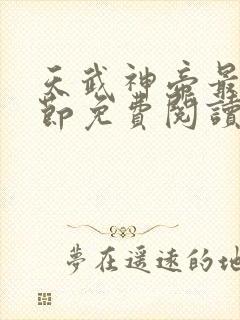 天武神帝最
節免費閱讀
夢在遥远的地